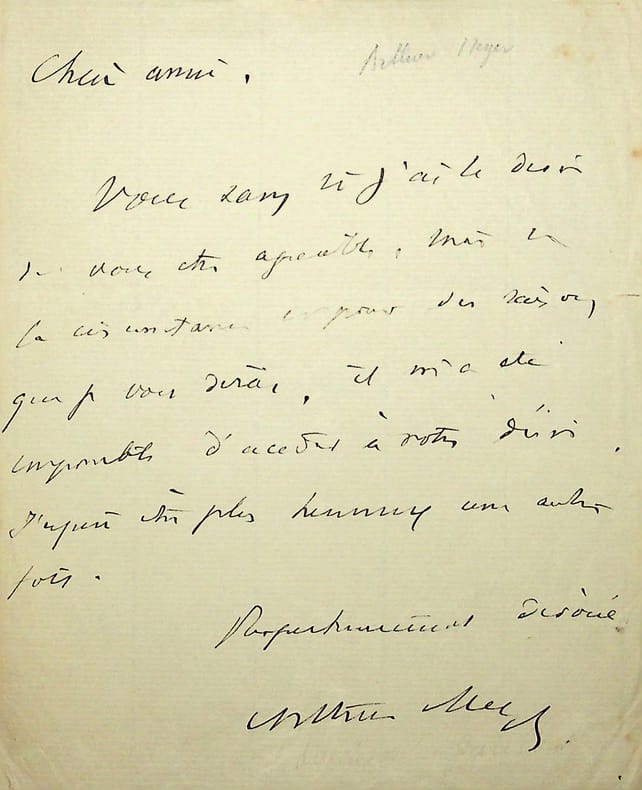 Arthur Meyer
Chère amie.
Vous savez si j'ai le désir
de vous être agréable, mais en
la circonstance et pour des raisons
que je vous dirai, il m'a été
impossible d'accéder à votre désir.
J'espère être plus heureux une autre
fois.
Respectueusement dévoué
Arthur Meyer